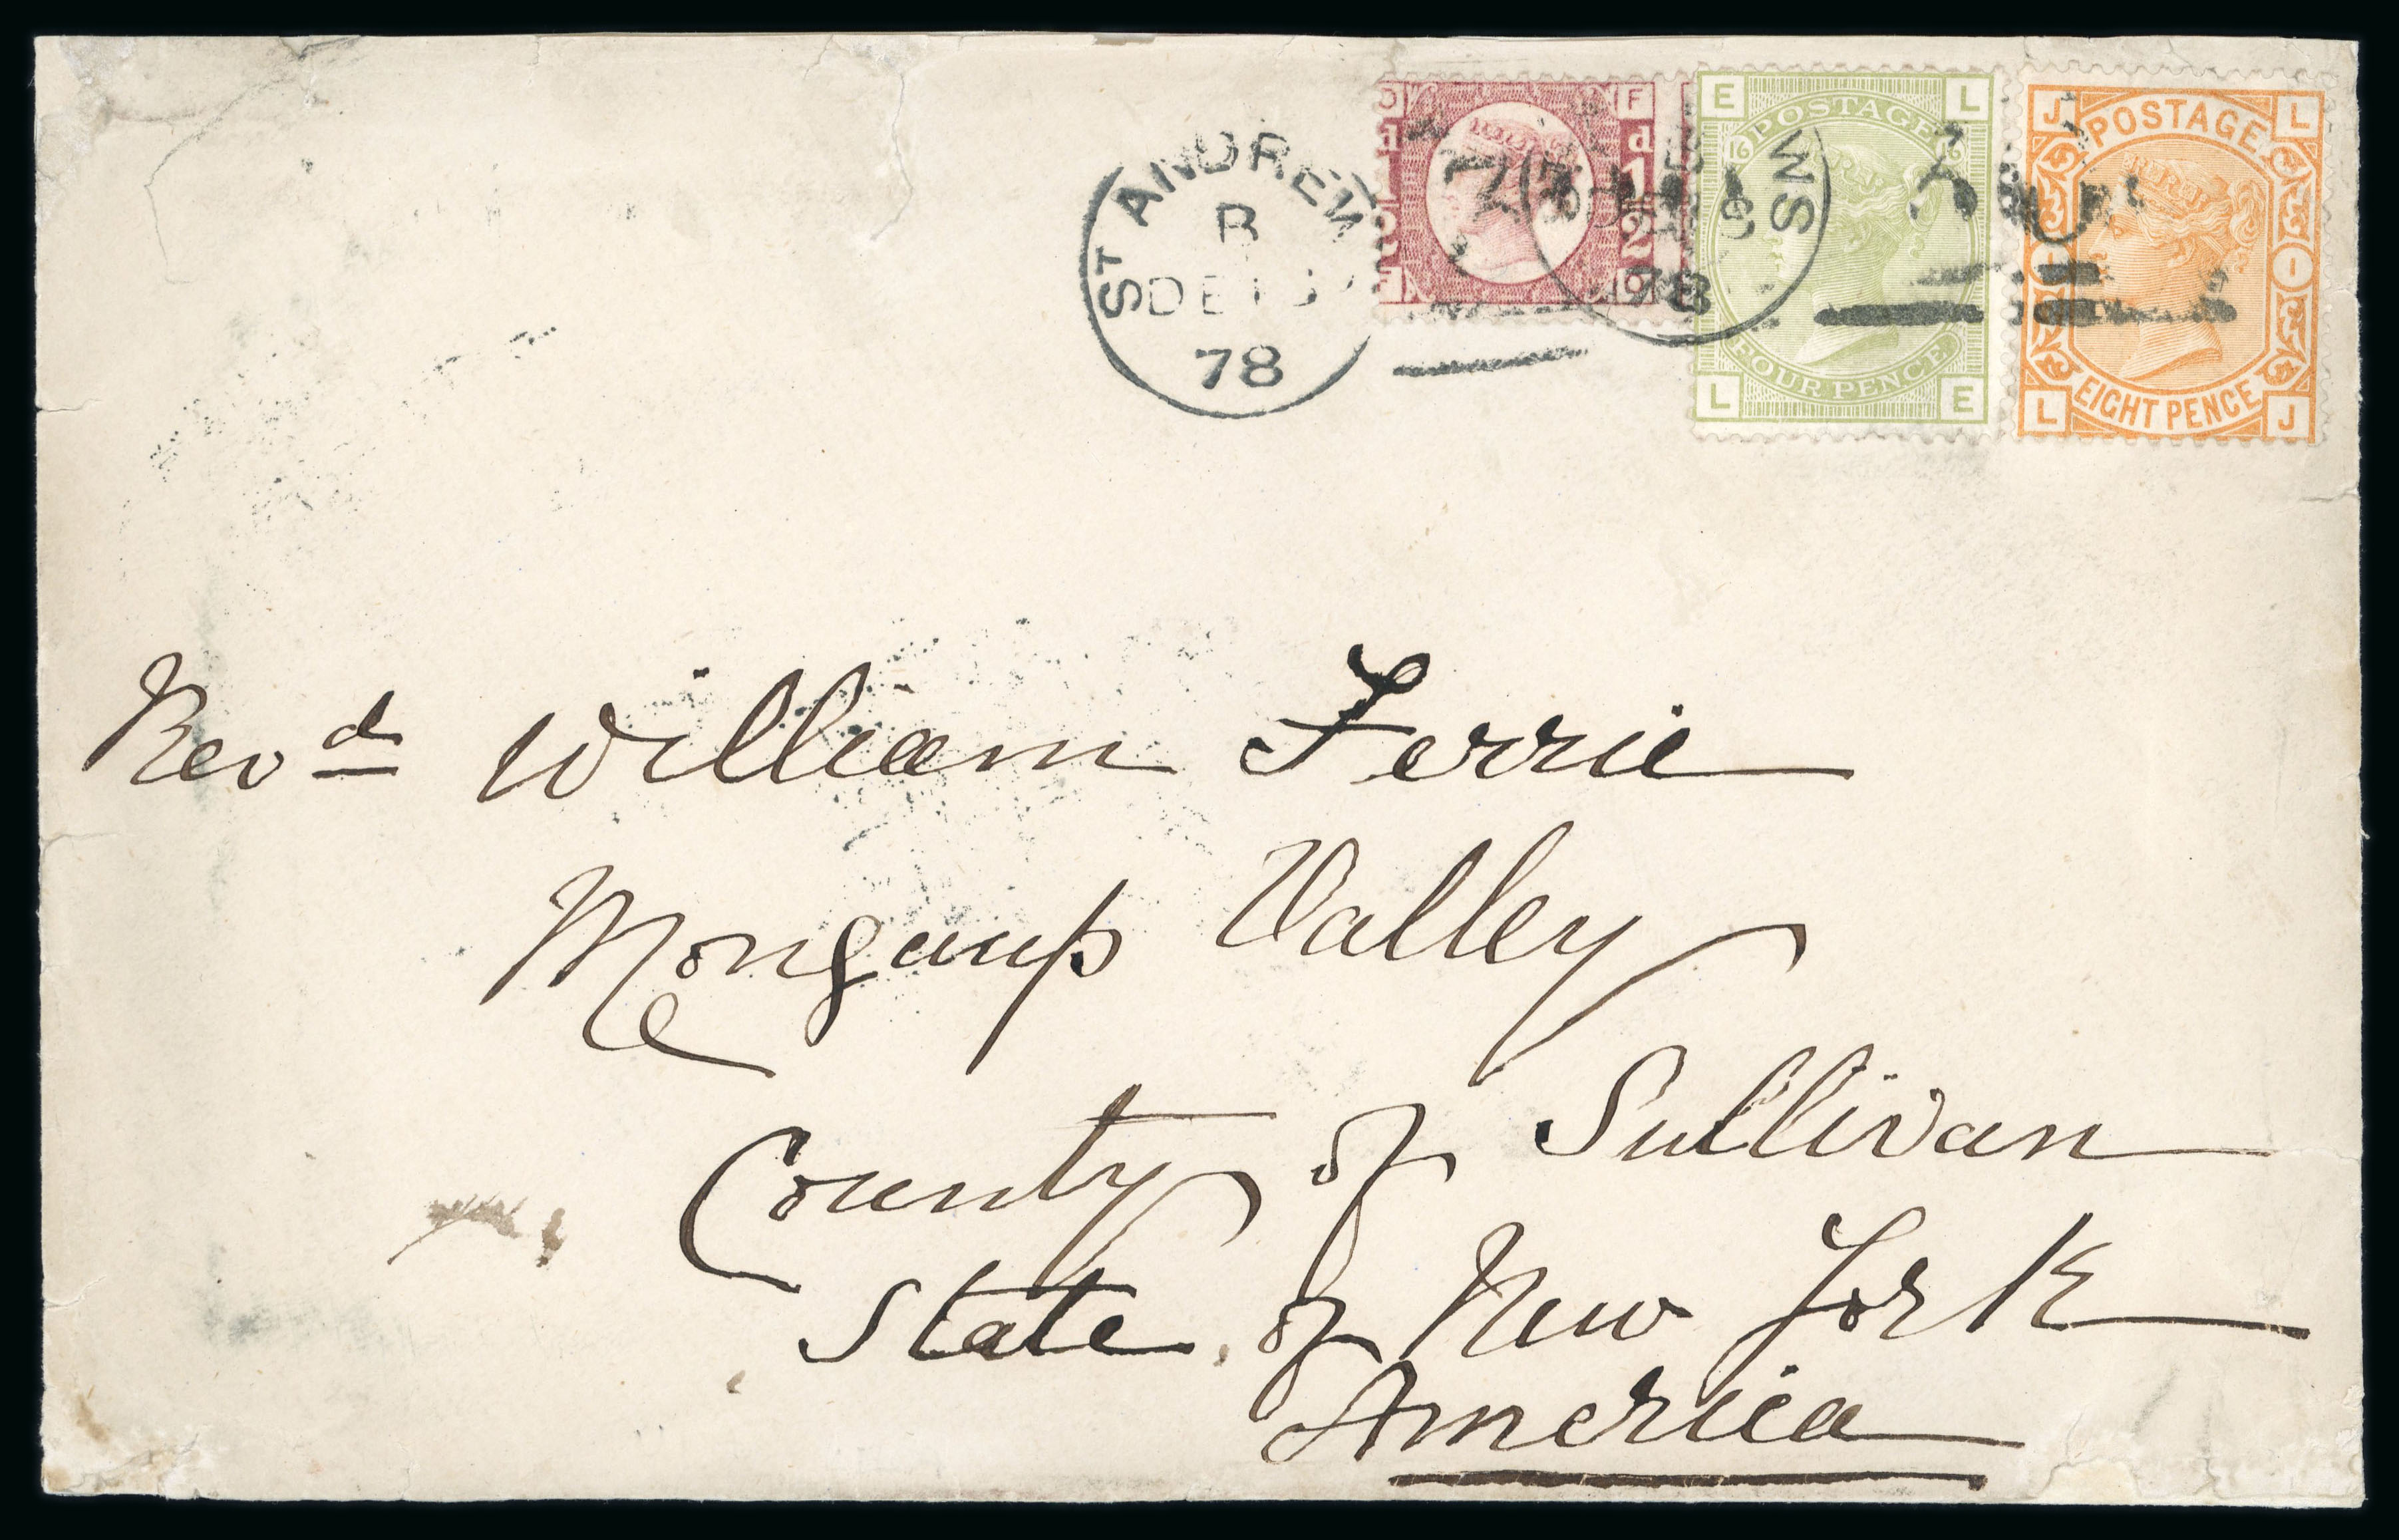 ST ANDREW
B
DE 1
78
WS
78
F
d
1
2
E L
POSTAGE
16 16
FOUR PENCE
L E
J L
POSTAGE
1
EIGHT PENCE
L J
Revd William Ferrie
Mongaup Valley
County of Sullivan
State of New York
America